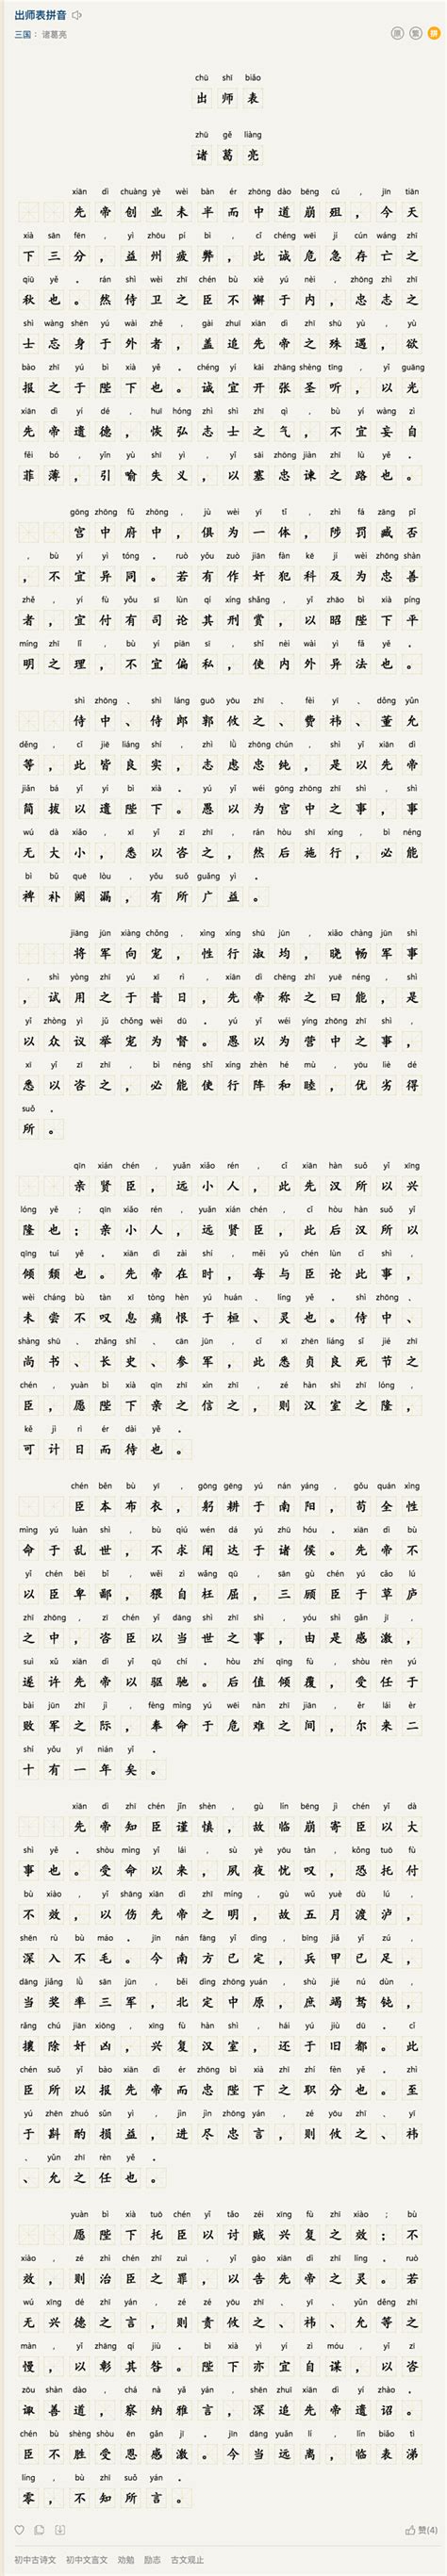 出师表拼音
三国：诸葛亮
原 繁 拼
chū shī biǎo
出师表
zhū gě liàng
诸葛亮
xiān dì chuàng yè wèi bàn ér zhōng dào bēng cú ， jīn tiān
先帝创业未半而中道崩殂，今天
xià sān fēn ， yì zhōu pí bì ， cǐ chéng wēi jí cún wáng zhī
下三分，益州疲弊，此诚危急存亡之
qiū yě 。 rán shì wèi zhī chén bù xiè yú nèi ， zhōng zhì zhī
秋也。然侍卫之臣不懈于内，忠志之
shì wàng shēn yú wài zhě ， gài zhuī xiān dì zhī shū yù ， yù
士忘身于外者，盖追先帝之殊遇，欲
bào zhī yú bì xià yě 。 chéng yí kāi zhāng shèng tīng ， yǐ guāng
报之于陛下也。诚宜开张圣听，以光
xiān dì yí dé ， huī hóng zhì shì zhī qì ， bù yí wàng zì
先帝遗德，恢弘志士之气，不宜妄自
fěi bó ， yǐn yù shī yì ， yǐ sāi zhōng jiàn zhī lù yě 。
菲薄，引喻失义，以塞忠谏之路也。
gōng zhōng fǔ zhōng ， jù wéi yì tǐ ， zhì fá zāng pǐ
宫中府中，俱为一体，陟罚臧否
， bù yí yì tóng 。 ruò yǒu zuò jiān fàn kē jí wéi zhōng shàn
，不宜异同。若有作奸犯科及为忠善
zhě ， yí fù yǒu sī lùn qí xíng shǎng ， yǐ zhāo bì xià píng
者，宜付有司论其刑赏，以昭陛下平
míng zhī lǐ ， bù yí piān sī ， shǐ nèi wài yì fǎ yě 。
明之理，不宜偏私，使内外异法也。
shì zhōng 、 shì láng guō yōu zhī 、 fèi yī 、 dǒng yǔn
侍中、侍郎郭攸之、费祎、董允
děng ， cǐ jiē liáng shí ， zhì lǜ zhōng chún ， shì yǐ xiān dì
等，此皆良实，志虑忠纯，是以先帝
jiǎn bá yǐ yí bì xià 。 yú yǐ wéi gōng zhōng zhī shì ， shì
简拔以遗陛下。愚以为宫中之事，事
wú dà xiǎo ， xī yǐ zī zhī ， rán hòu shī xíng ， bì néng
无大小，悉以咨之，然后施行，必能
bì bǔ quē lòu ， yǒu suǒ guǎng yì 。
裨补阙漏，有所广益。
jiāng jūn xiàng chǒng ， xìng xíng shū jūn ， xiǎo chàng jūn shì
将军向宠，性行淑均，晓畅军事
， shì yòng zhī yú xī rì ， xiān dì chēng zhī yuē néng ， shì
，试用之于昔日，先帝称之曰能，是
yǐ zhòng yì jǔ chǒng wéi dū 。 yú yǐ wéi yíng zhōng zhī shì ，
以众议举宠为督。愚以为营中之事，
xī yǐ zī zhī ， bì néng shǐ háng zhèn hé mù ， yōu liè dé
悉以咨之，必能使行阵和睦，优劣得
suǒ 。
所。
qīn xián chén ， yuǎn xiǎo rén ， cǐ xiān hàn suǒ yǐ xīng
亲贤臣，远小人，此先汉所以兴
lóng yě ； qīn xiǎo rén ， yuǎn xián chén ， cǐ hòu hàn suǒ yǐ
隆也；亲小人，远贤臣，此后汉所以
qīng tuí yě 。 xiān dì zài shí ， měi yǔ chén lùn cǐ shì ，
倾颓也。先帝在时，每与臣论此事，
wèi cháng bù tàn xī tòng hèn yú huán 、 líng yě 。 shì zhōng 、
未尝不叹息痛恨于桓、灵也。侍中、
shàng shū 、 zhǎng shǐ 、 cān jūn ， cǐ xī zhēn liáng sǐ jié zhī
尚书、长史、参军，此悉贞良死节之
chén ， yuàn bì xià qīn zhī xìn zhī ， zé hàn shì zhī lóng ，
臣，愿陛下亲之信之，则汉室之隆，
kě jì rì ér dài yě 。
可计日而待也。
chén běn bù yī ， gōng gēng yú nán yáng ， gǒu quán xìng
臣本布衣，躬耕于南阳，苟全性
mìng yú luàn shì ， bù qiú wén dá yú zhū hóu 。 xiān dì bù
命于乱世，不求闻达于诸侯。先帝不
yǐ chén bēi bǐ ， wěi zì wǎng qū ， sān gù chén yú cǎo lú
以臣卑鄙，猥自枉屈，三顾臣于草庐
zhī zhōng ， zī chén yǐ dāng shì zhī shì ， yóu shì gǎn jī ，
之中，咨臣以当世之事，由是感激，
suì xǔ xiān dì yǐ qū chí 。 hòu zhí qīng fù ， shòu rèn yú
遂许先帝以驱驰。后值倾覆，受任于
bài jūn zhī jì ， fèng mìng yú wēi nàn zhī jiān ， ěr lái èr
败军之际，奉命于危难之间，尔来二
shí yǒu yī nián yǐ 。
十有一年矣。
xiān dì zhī chén jǐn shèn ， gù lín bēng jì chén yǐ dà
先帝知臣谨慎，故临崩寄臣以大
shì yě 。 shòu mìng yǐ lái ， sù yè yōu tàn ， kǒng tuō fù
事也。受命以来，夙夜忧叹，恐托付
bù xiào ， yǐ shāng xiān dì zhī míng ， gù wǔ yuè dù lú ，
不效，以伤先帝之明，故五月渡泸，
shēn rù bù máo 。 jīn nán fāng yǐ dìng ， bīng jiǎ yǐ zú ，
深入不毛。今南方已定，兵甲已足，
dāng jiǎng lǜ sān jūn ， běi dìng zhōng yuán ， shù jié nú dùn ，
当奖率三军，北定中原，庶竭驽钝，
rǎng chú jiān xiōng ， xīng fù hàn shì ， hái yú jiù dū 。 cǐ
攘除奸凶，兴复汉室，还于旧都。此
chén suǒ yǐ bào xiān dì ér zhōng bì xià zhī zhí fèn yě 。 zhì
臣所以报先帝而忠陛下之职分也。至
yú zhēn zhuó sǔn yì ， jìn jìn zhōng yán ， zé yōu zhī 、 yī
于斟酌损益，进尽忠言，则攸之、祎
、 yǔn zhī rèn yě 。
、允之任也。
yuàn bì xià tuō chén yǐ tǎo zéi xīng fù zhī xiào ； bù
愿陛下托臣以讨贼兴复之效；不
xiào ， zé zhì chén zhī zuì ， yǐ gào xiān dì zhī líng 。 ruò
效，则治臣之罪，以告先帝之灵。若
wú xīng dé zhī yán ， zé zé yōu zhī 、 yī 、 yǔn děng zhī
无兴德之言，则责攸之、祎、允等之
màn ， yǐ zhāng qí jiù 。 bì xià yì yí zì móu ， yǐ zī
慢，以彰其咎。陛下亦宜自谋，以咨
zōu shàn dào ， chá nà yǎ yán ， shēn zhuī xiān dì yí zhào 。
诹善道，察纳雅言，深追先帝遗诏。
chén bù shèng shòu ēn gǎn jī 。 jīn dāng yuǎn lí ， lín biǎo tì
臣不胜受恩感激。今当远离，临表涕
líng ， bù zhī suǒ yán 。
零，不知所言。
赞(4)
初中古诗文 初中文言文 劝勉 励志 古文观止